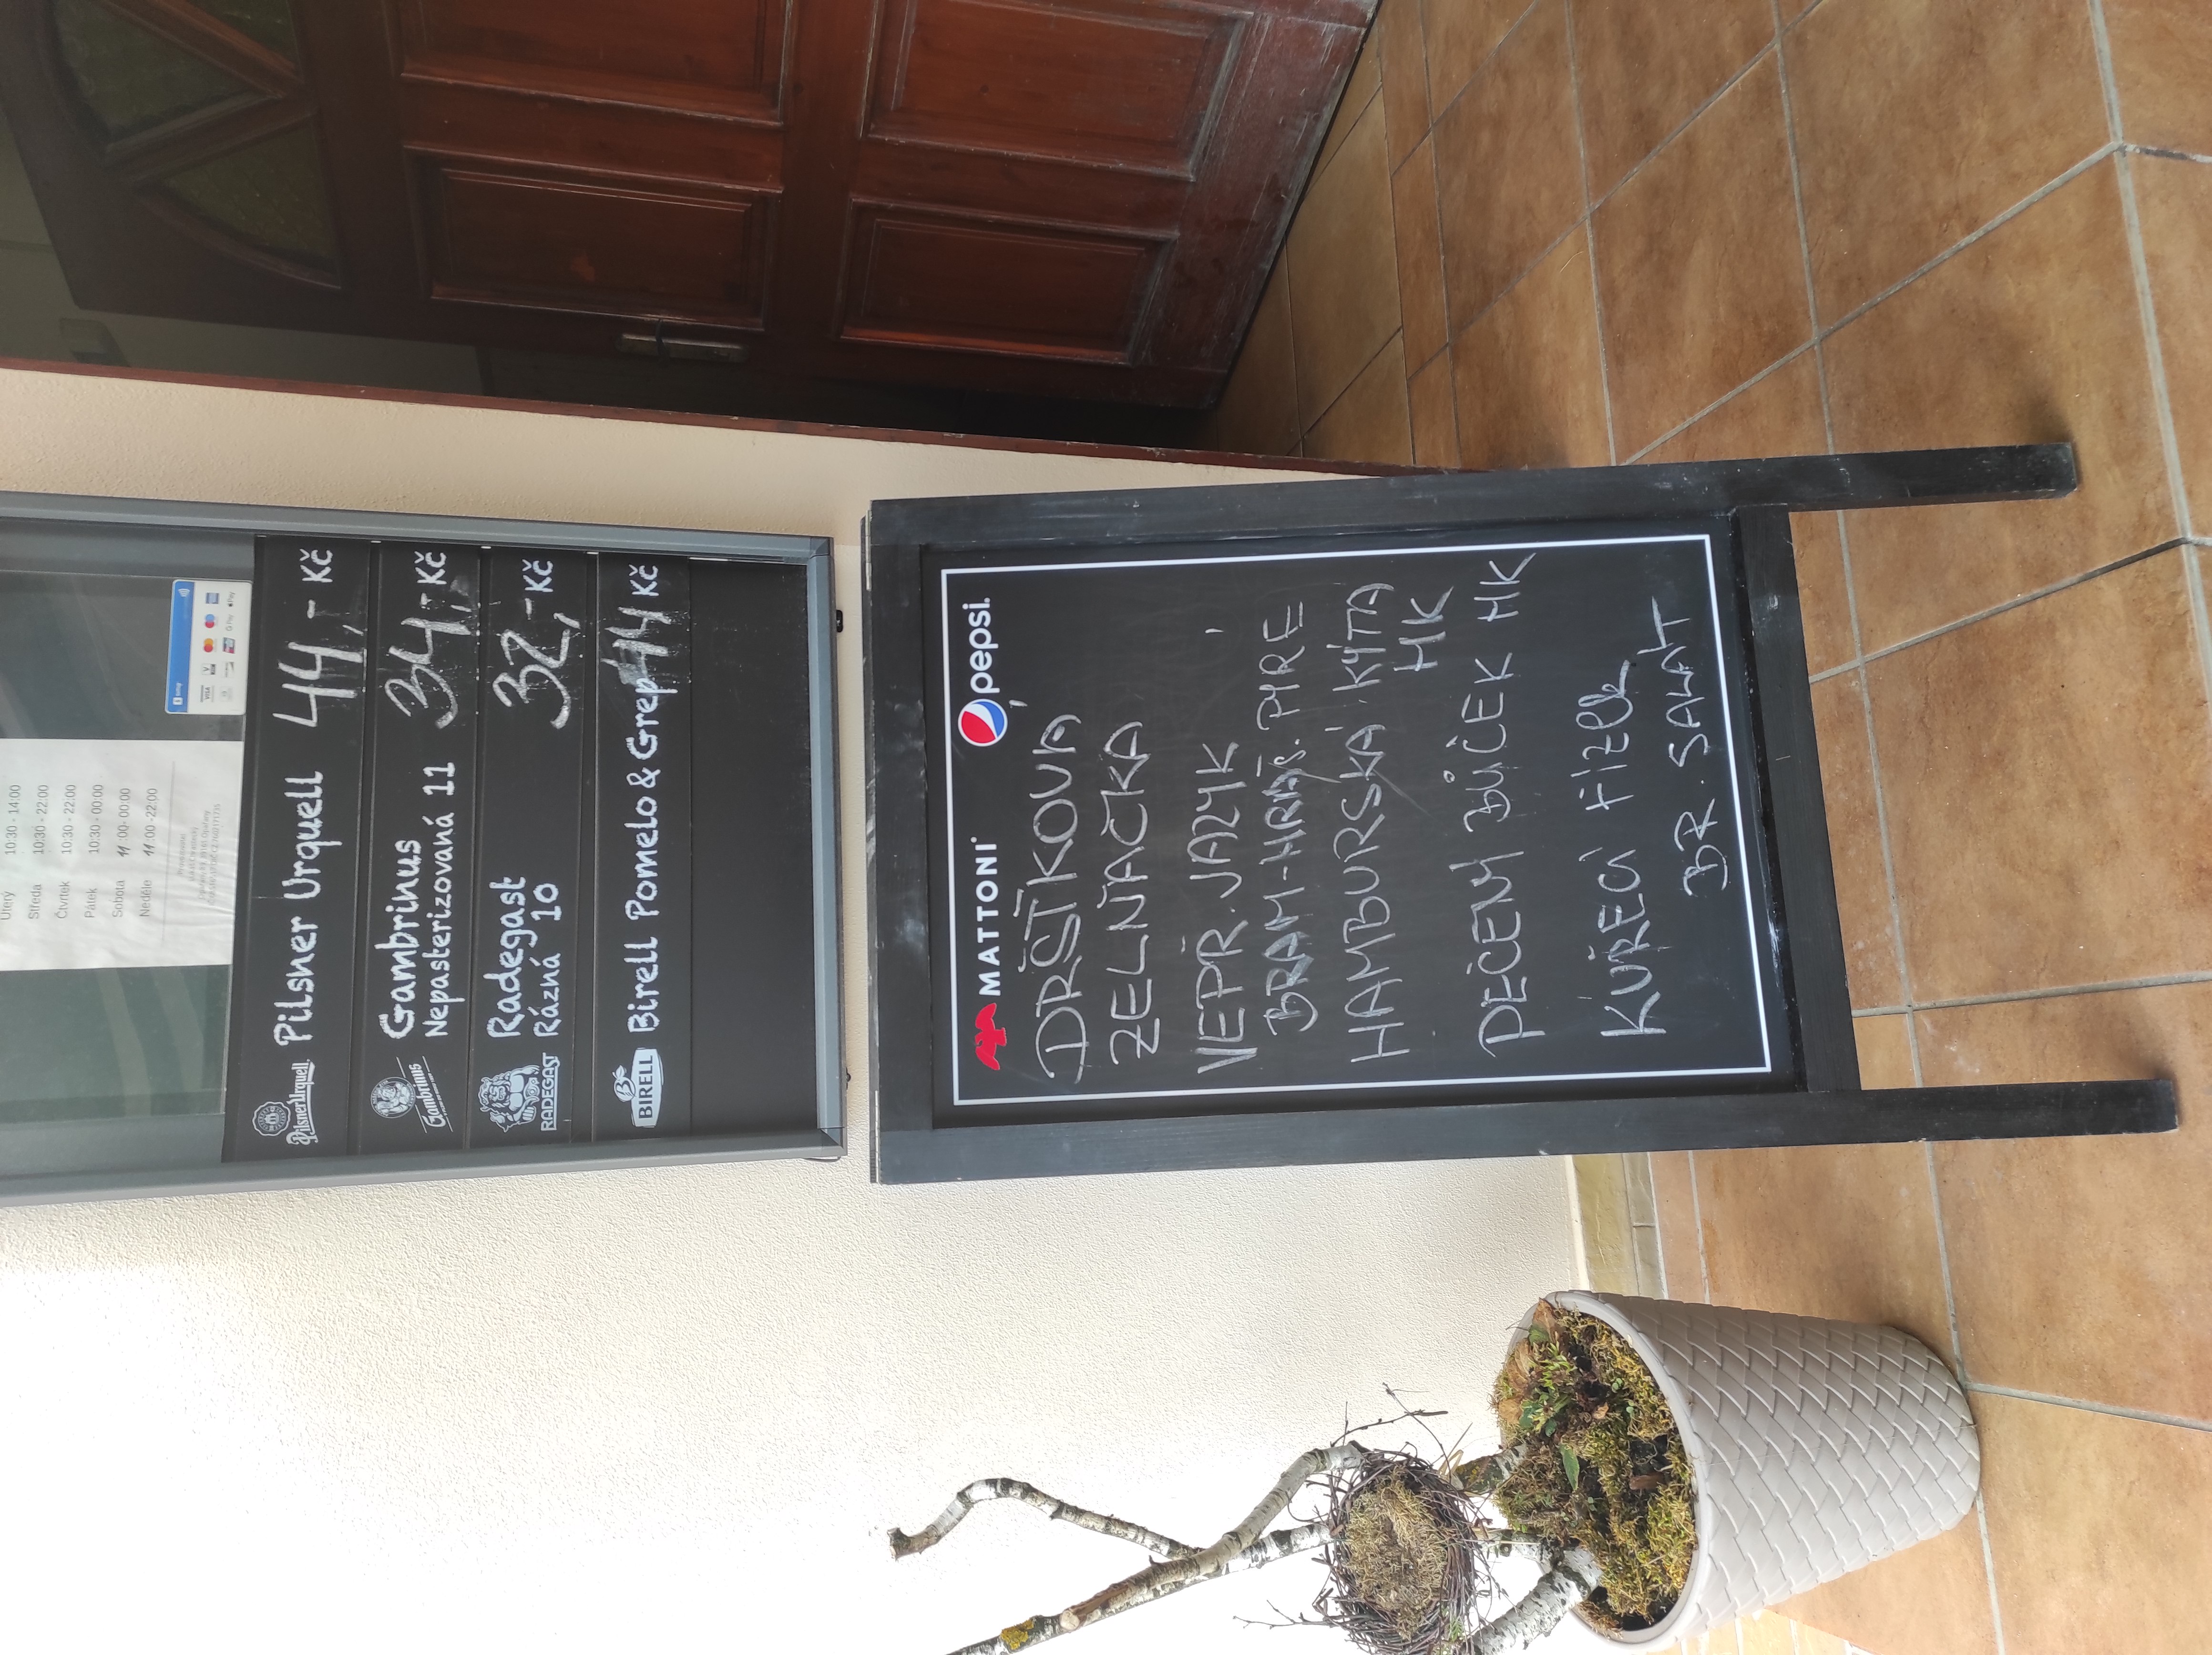 Úterý 10:30 - 14:00
Středa 10:30 - 22:00
Čtvrtek 10:30 - 22:00
Pátek 10:30 - 00:00
Sobota 11:00 - 00:00
Neděle 11:00 - 22:00
VISA
G Pay
Pay
Pilsner Urquell Pilsner Urquell 44,- Kč
Gambrinus Gambrinus 34,- Kč
Nepasterizovaná 11
RADEGAST Radegast 32,- Kč
Rázná 10
BIRELL Birell Pomelo & Grep 44 Kč
MATTONI pepsi
DRŠŤKOVÁ
ZELŇAČKA
VEPŘ. JAZYK
BRAM-HRÁŠ. PYRÉ
HAMBURSKÁ KÝTA
HK
PEČENÝ BŮČEK HK
KUŘECÍ ŘÍZEK
BR. SALÁT